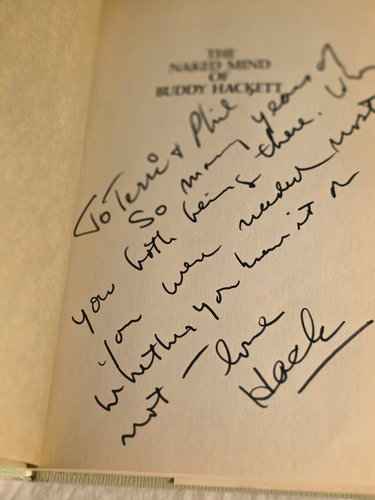 THE
NAKED MIND
OF
BUDDY HACKETT
To Terri & Phil
So many years of
you both being there. When
you were needed most
Whether you knew it or
not — love
Hack